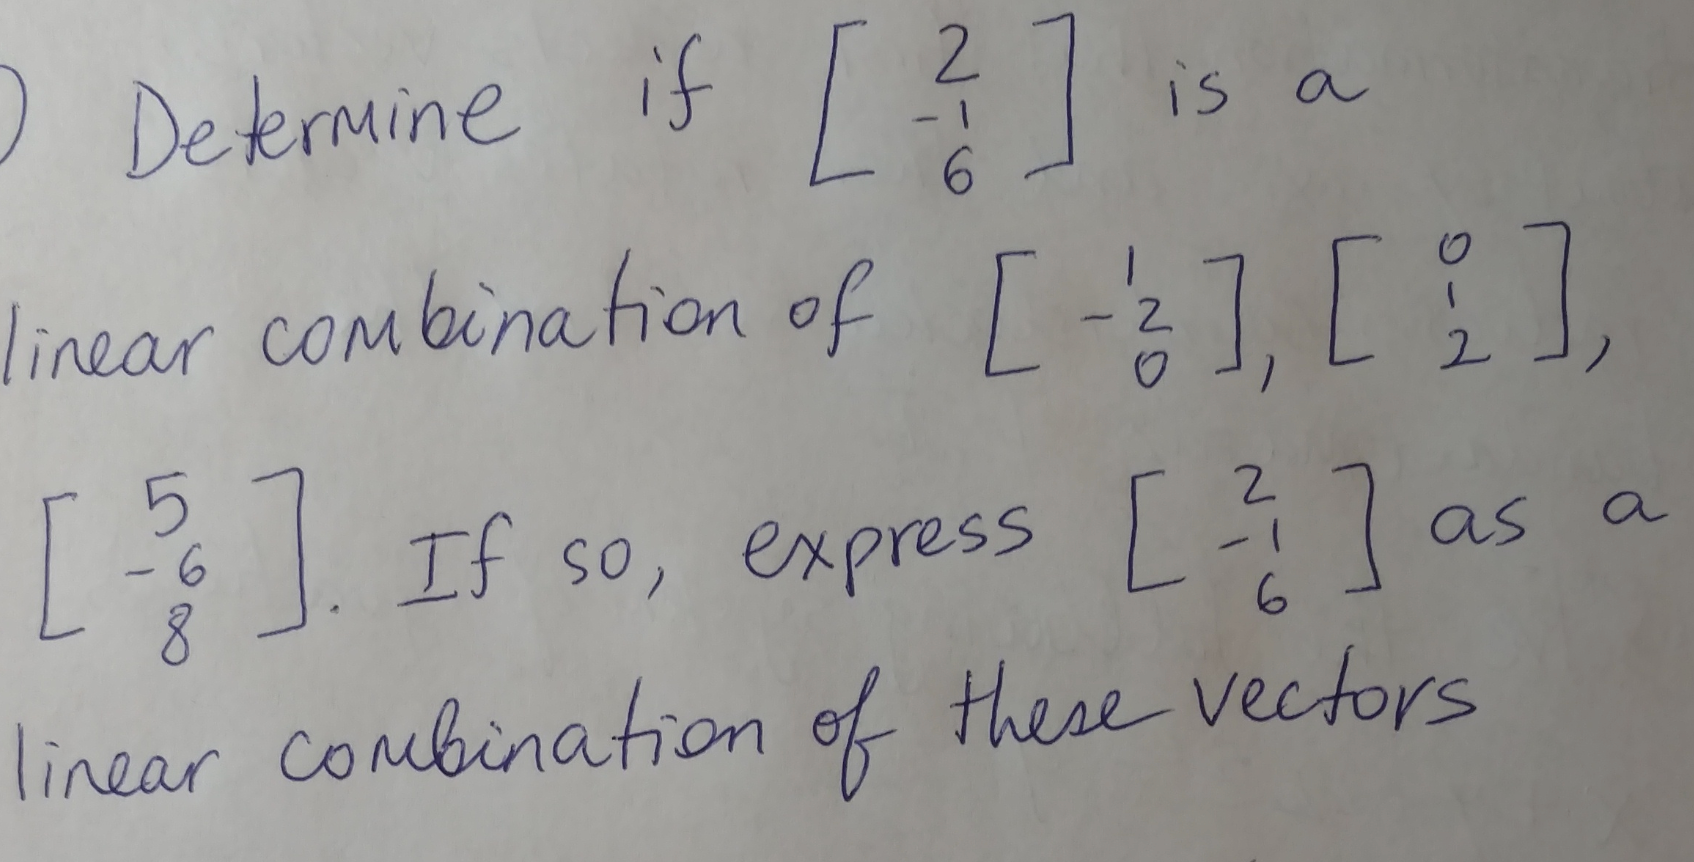 ) Determine if [ 2 -1 6 ] is a
linear combination of [ 1 -2 0 ], [ 0 1 2 ],
[ 5 -6 8 ]. If so, express [ 2 -1 6 ] as a
linear combination of these vectors